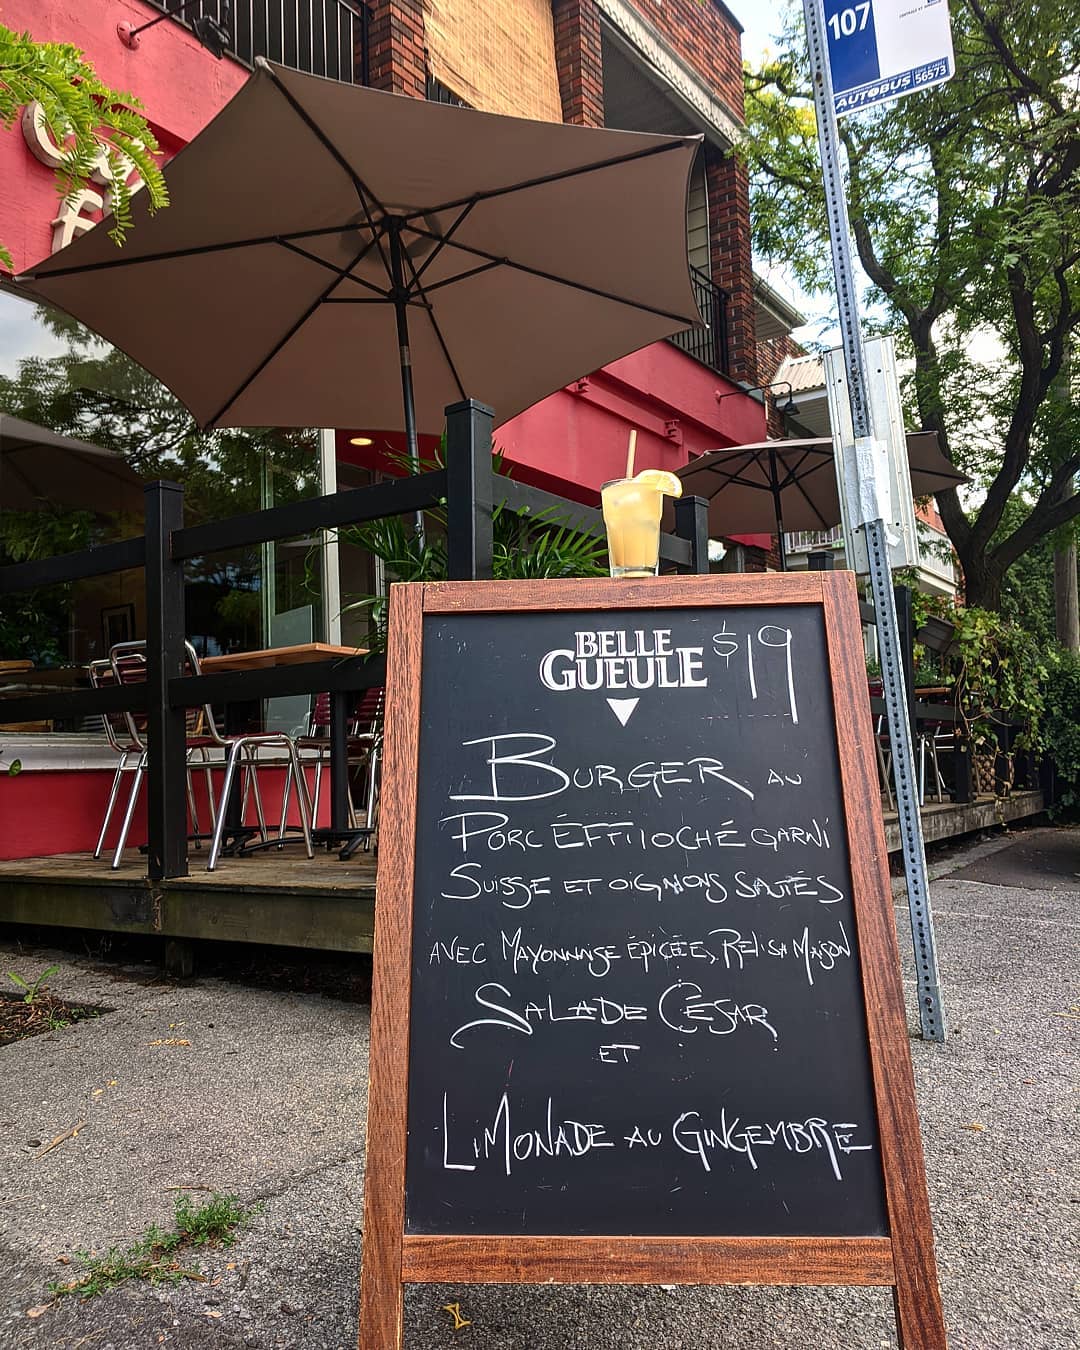 107
AUTOBUS 56573
BELLE
GUEULE $19
BURGER AU
PORC ÉFFILOCHÉ GARNI
SUISSE ET OIGNONS SAUTÉS
AVEC MAYONNAISE ÉPICÉE, RELISH MAISON
SALADE CÉSAR
ET
LIMONADE AU GINGEMBRE